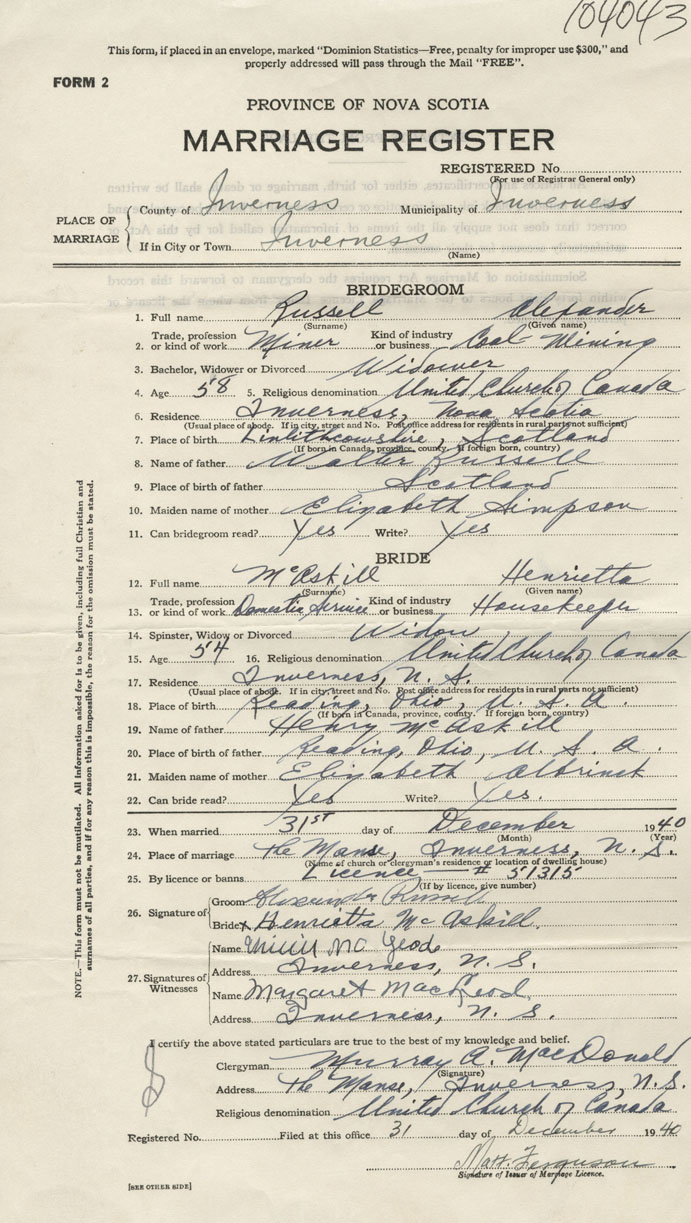 104043
This form, if placed in an envelope, marked "Dominion Statistics—Free, penalty for improper use $300," and
properly addressed will pass through the Mail "FREE".
FORM 2
PROVINCE OF NOVA SCOTIA
MARRIAGE REGISTER
REGISTERED No.
(For use of Registrar General only)
PLACE OF MARRIAGE
County of Inverness Municipality of Inverness
If in City or Town Inverness
(Name)
BRIDEGROOM
1. Full name Russell Alexander
(Surname) (Given name)
2. Trade, profession or kind of work Miner Kind of industry or business Coal Mining
3. Bachelor, Widower or Divorced Widower
4. Age 58 5. Religious denomination United Church of Canada
6. Residence Inverness, Nova Scotia
(Usual place of abode. If in city, street and No. Post office address for residents in rural parts not sufficient)
7. Place of birth Linlithcowshire, Scotland
(If born in Canada, province, county. If foreign born, country)
8. Name of father Walter Russell
9. Place of birth of father Scotland
10. Maiden name of mother Elizabeth Simpson
11. Can bridegroom read? Yes Write? Yes
BRIDE
12. Full name McAskill Henrietta
(Surname) (Given name)
13. Trade, profession or kind of work Domestic Service Kind of industry or business Housekeeper
14. Spinster, Widow or Divorced Widow
15. Age 54 16. Religious denomination United Church of Canada
17. Residence Inverness, N. S.
(Usual place of abode. If in city, street and No. Post office address for residents in rural parts not sufficient)
18. Place of birth Reading, Ohio, U. S. A.
(If born in Canada, province, county. If foreign born, country)
19. Name of father Henry McAskill
20. Place of birth of father Reading, Ohio, U. S. A.
21. Maiden name of mother Elizabeth Albrinck
22. Can bride read? Yes Write? Yes.
23. When married 31st day of December 1940
(Month) (Year)
24. Place of marriage The Manse, Inverness, N. S.
(Name of church or clergyman's residence or location of dwelling house)
25. By licence or banns Licence — # 51315
(If by licence, give number)
26. Signature of
Groom Alexander Russell
Bride x Henrietta McAskill.
27. Signatures of Witnesses
Name
Address Inverness, N. S.
Name Margaret MacLeod
Address Inverness, N. S.
I certify the above stated particulars are true to the best of my knowledge and belief.
Clergyman Murray A. MacDonald
(Signature)
Address The Manse, Inverness, N. S.
Religious denomination United Church of Canada
Registered No. Filed at this office 31 day of December 1940
Matt. Ferguson
Signature of Issuer of Marriage Licence.
[SEE OTHER SIDE]
NOTE.—This form must not be mutilated. All information asked for is to be given, including full Christian and
surnames of all parties, and if for any reason this is impossible, the reason for the omission must be stated.